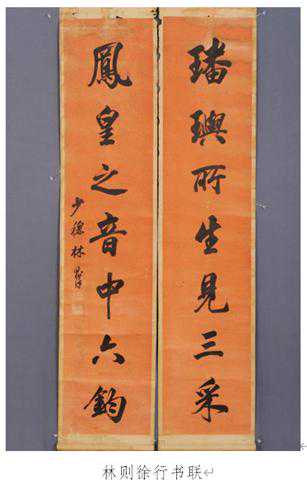 璠璵所生見三采
鳳皇之音中六鈞
少穆林則徐
林则徐行书联